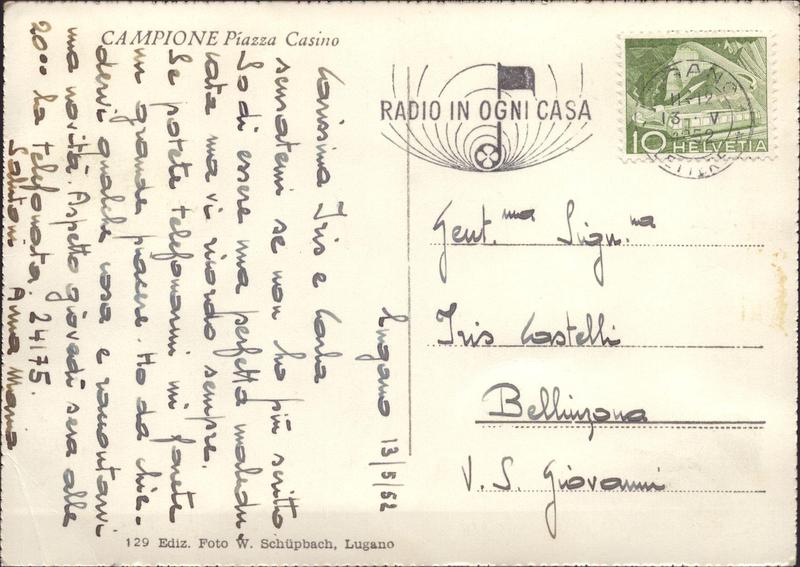 CAMPIONE Piazza Casino
Lugano 13/5/52
Carissima Iris e Carla
scusatemi se non ho più scritto
So di essere una perfetta maledu-
cata ma vi ricordo sempre.
Se potete telefonarmi mi farete
un grande piacere. Ho da chie-
dervi qualche cosa e raccontarvi
una novità. Aspetto giovedì sera alle
20°° la telefonata. 24175.
Salutoni Anna Maria
129 Ediz. Foto W. Schüpbach, Lugano
RADIO IN OGNI CASA
LUGANO
13. V
1952
LETTERE
10 HELVETIA
Gent.ma Sign.na
Iris Castelli
Bellinzona
V. S. Giovanni